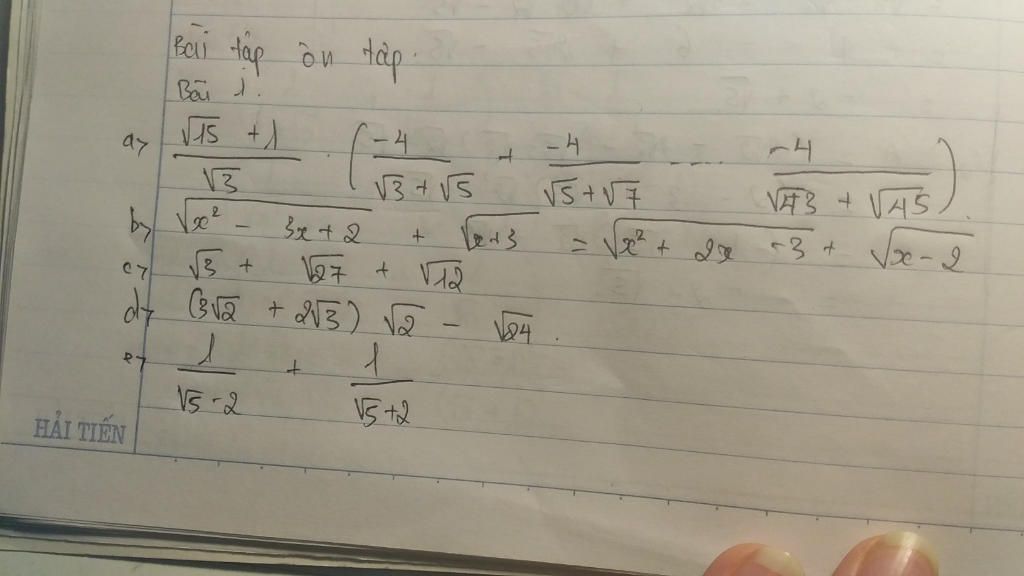 Bài tập ôn tập.
Bài 1.
a> (√15 + 1)/√3 . (-4/(√3 + √5) + -4/(√5 + √7) ..... -4/(√43 + √45)).
b> √(x² - 3x + 2) + √(x+3) = √(x² + 2x - 3) + √(x - 2)
c> √3 + √27 + √12
d> (3√2 + 2√3) √2 - √24.
e> 1/(√5 - 2) + 1/(√5 + 2)
HẢI TIẾN